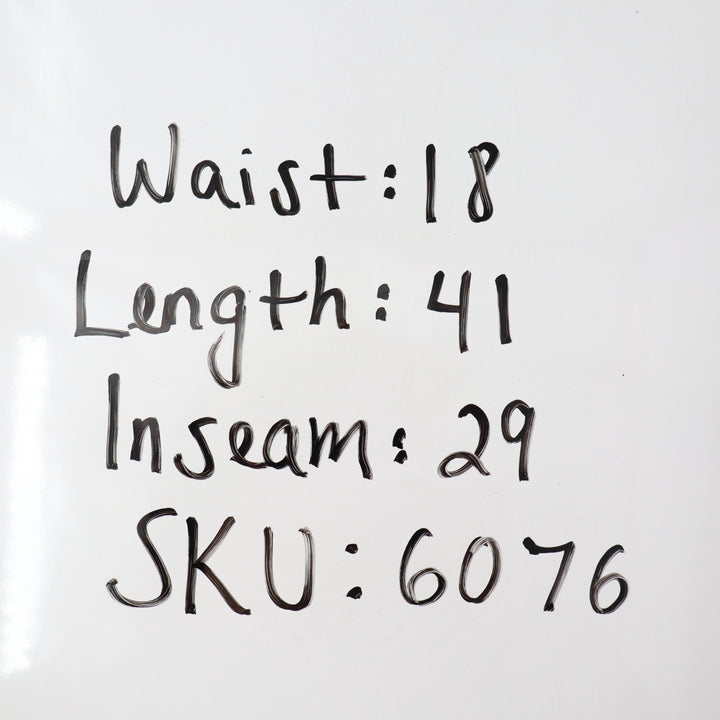 Waist: 18
Length: 41
Inseam: 29
SKU: 6076